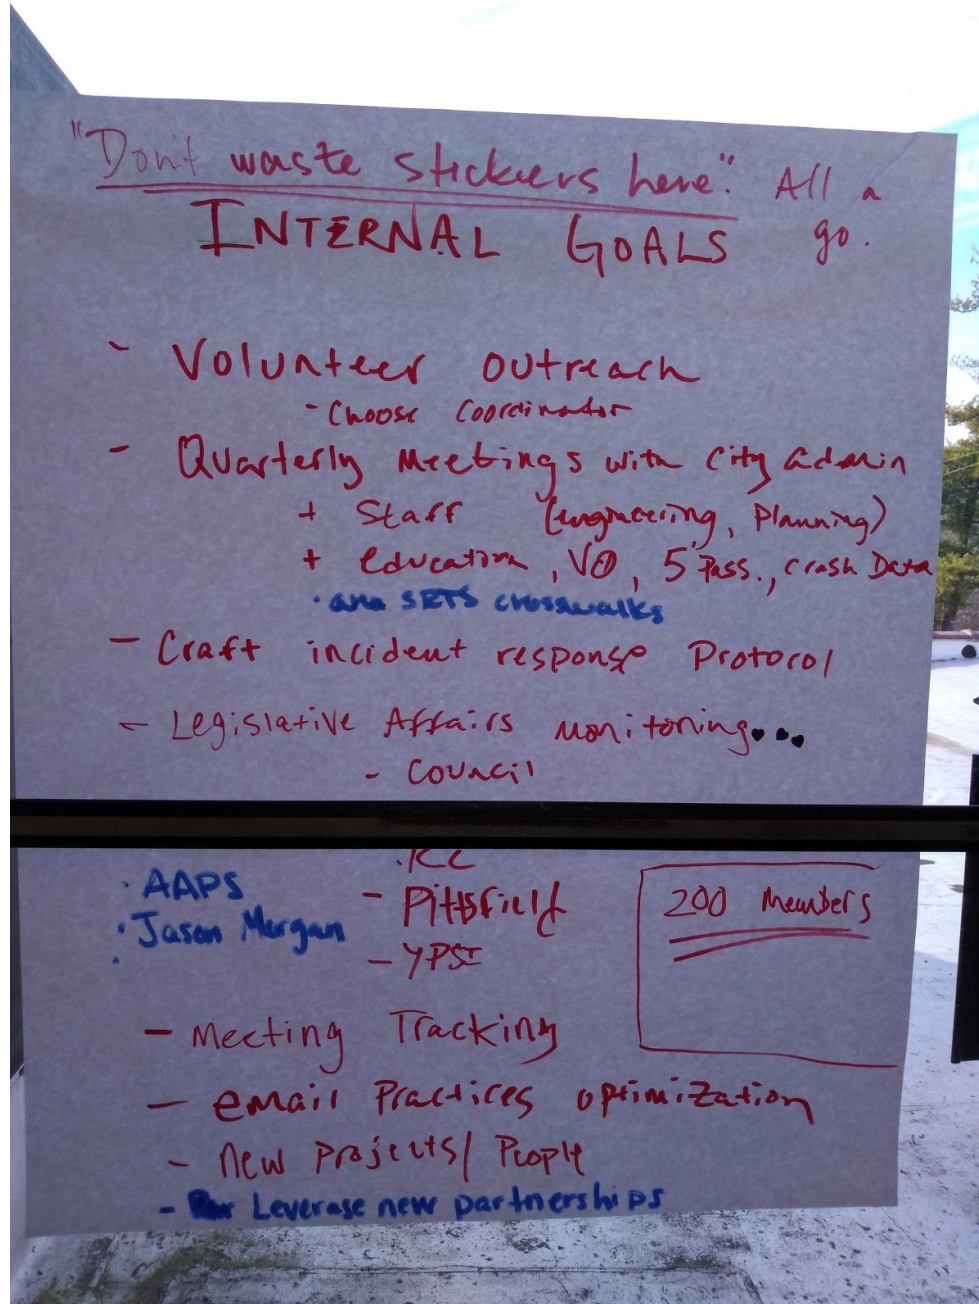 "Don't waste stickers here." All a
INTERNAL GOALS go.
- Volunteer outreach
- Choose Coordinator
- Quarterly Meetings with City admin
+ Staff (engineering, Planning)
+ education, VO, 5 Pass., crash Data
• SRTS crosswalks
- Craft incident response Protocol
- Legislative Affairs monitoring...
- Council
• AAPS
• Jason Morgan
- Pittsfield
- YPSI
200 Members
- Meeting Tracking
- email Practices optimization
- New Projects/ People
- Leverage new partnerships